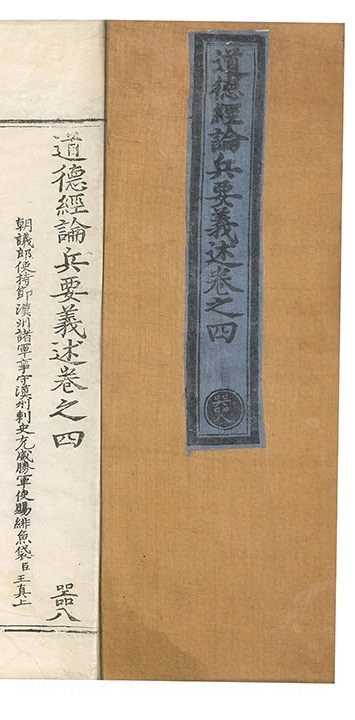 道德經論兵要義述卷之四
器八
道德經論兵要義述卷之四
器八
朝議郎使持節漢州諸軍事守漢州刺史充威勝軍使賜緋魚袋臣王真上